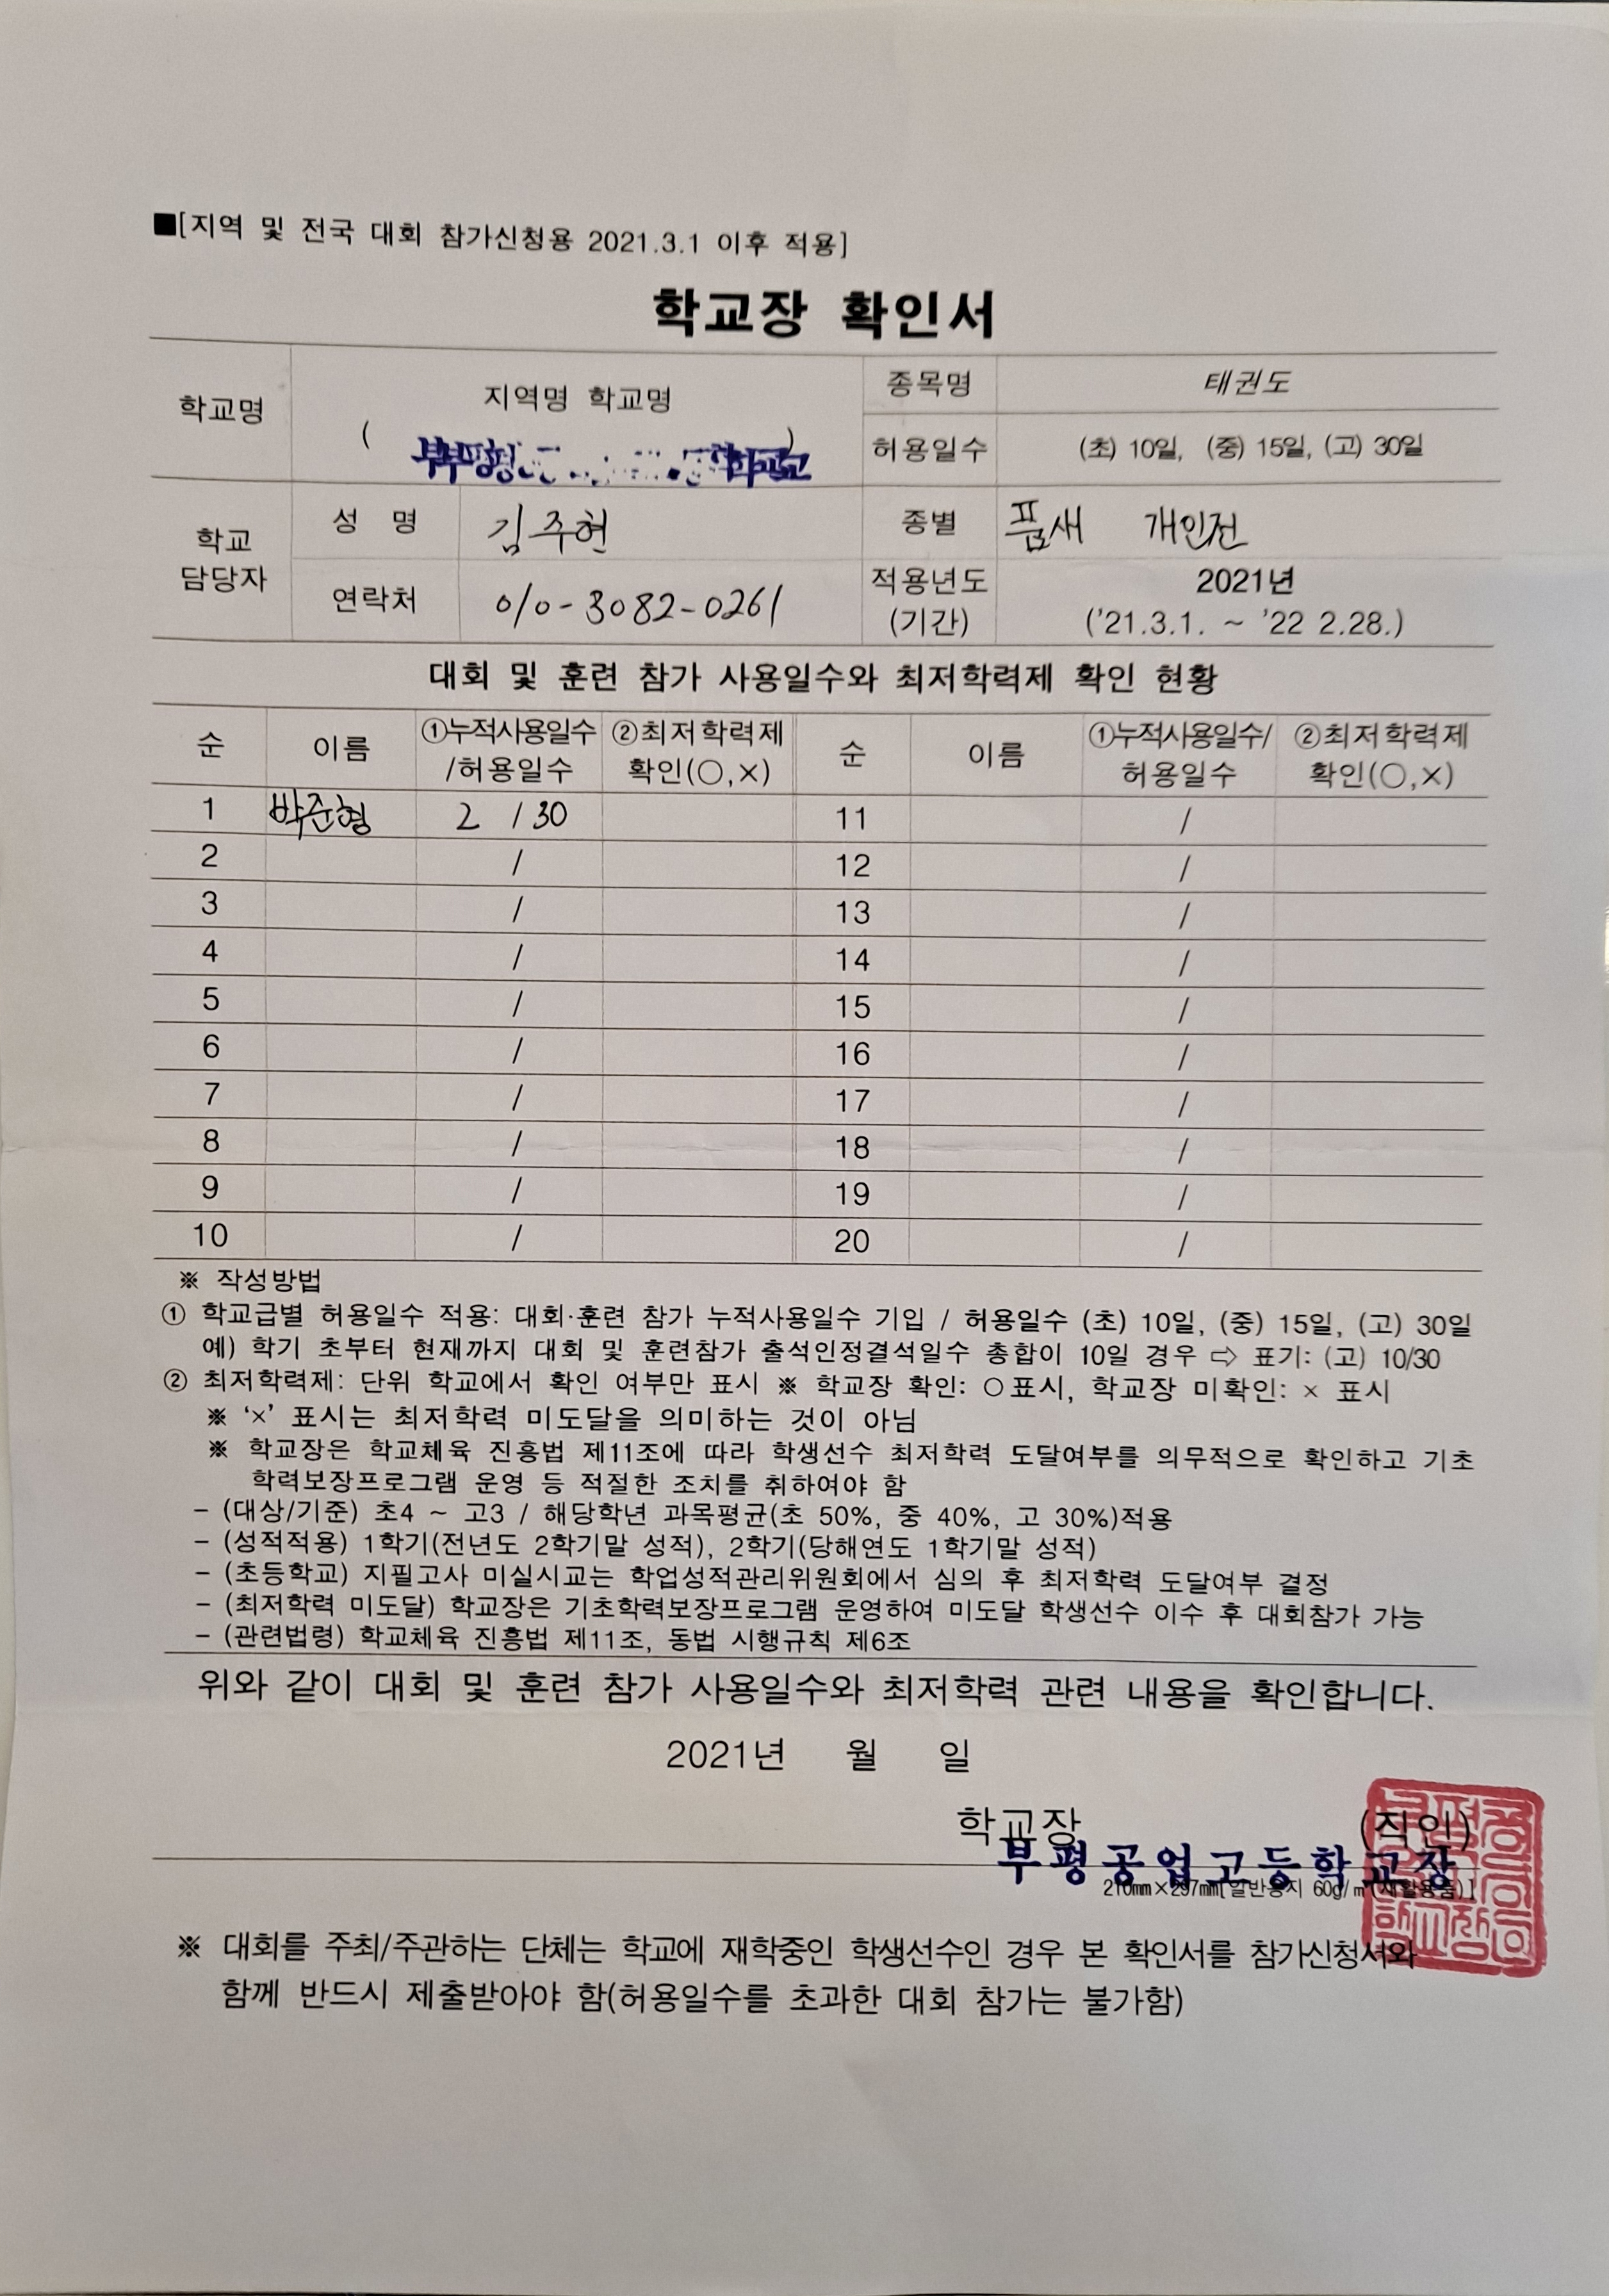 ■[지역 및 전국 대회 참가신청용 2021.3.1 이후 적용]
학교장 확인서
학교명
지역명 학교명
( )
종목명 태권도
허용일수 (초) 10일, (중) 15일, (고) 30일
학교
담당자
성 명 김주현
종별 품새 개인전
연락처 010-3082-0261
적용년도
(기간)
2021년
('21.3.1. ~ '22 2.28.)
대회 및 훈련 참가 사용일수와 최저학력제 확인 현황
순 이름 ①누적사용일수/허용일수 ②최저학력제 확인(○,×) 순 이름 ①누적사용일수/허용일수 ②최저학력제 확인(○,×)
1 박준형 2 / 30 11 /
2 / 12 /
3 / 13 /
4 / 14 /
5 / 15 /
6 / 16 /
7 / 17 /
8 / 18 /
9 / 19 /
10 / 20 /
※ 작성방법
① 학교급별 허용일수 적용: 대회·훈련 참가 누적사용일수 기입 / 허용일수 (초) 10일, (중) 15일, (고) 30일
예) 학기 초부터 현재까지 대회 및 훈련참가 출석인정결석일수 총합이 10일 경우 ⇨ 표기: (고) 10/30
② 최저학력제: 단위 학교에서 확인 여부만 표시 ※ 학교장 확인: ○표시, 학교장 미확인: × 표시
※ '×' 표시는 최저학력 미도달을 의미하는 것이 아님
※ 학교장은 학교체육 진흥법 제11조에 따라 학생선수 최저학력 도달여부를 의무적으로 확인하고 기초
학력보장프로그램 운영 등 적절한 조치를 취하여야 함
- (대상/기준) 초4 ~ 고3 / 해당학년 과목평균(초 50%, 중 40%, 고 30%)적용
- (성적적용) 1학기(전년도 2학기말 성적), 2학기(당해연도 1학기말 성적)
- (초등학교) 지필고사 미실시교는 학업성적관리위원회에서 심의 후 최저학력 도달여부 결정
- (최저학력 미도달) 학교장은 기초학력보장프로그램 운영하여 미도달 학생선수 이수 후 대회참가 가능
- (관련법령) 학교체육 진흥법 제11조, 동법 시행규칙 제6조
위와 같이 대회 및 훈련 참가 사용일수와 최저학력 관련 내용을 확인합니다.
2021년 월 일
학교장 (직인)
부평공업고등학교장
210mm×297mm[일반용지 60g/㎡(재활용품)]
※ 대회를 주최/주관하는 단체는 학교에 재학중인 학생선수인 경우 본 확인서를 참가신청서와
함께 반드시 제출받아야 함(허용일수를 초과한 대회 참가는 불가함)